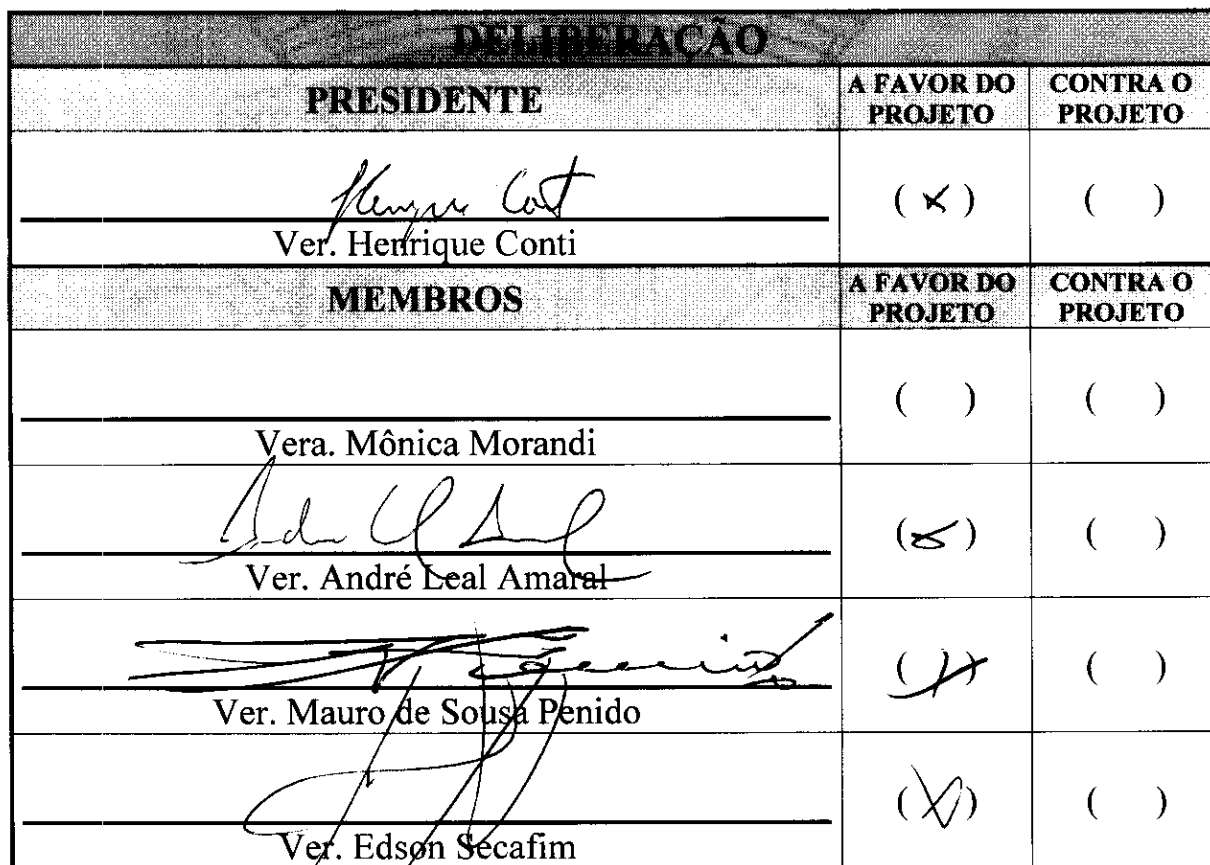 DELIBERAÇÃO
PRESIDENTE
A FAVOR DO PROJETO
CONTRA O PROJETO
Henrique Cont
( x )
( )
Ver. Henrique Conti
MEMBROS
A FAVOR DO PROJETO
CONTRA O PROJETO
( )
( )
Vera. Mônica Morandi
( x )
( )
Ver. André Leal Amaral
( x )
( )
Ver. Mauro de Sousa Penido
( x )
( )
Ver. Edson Secafim